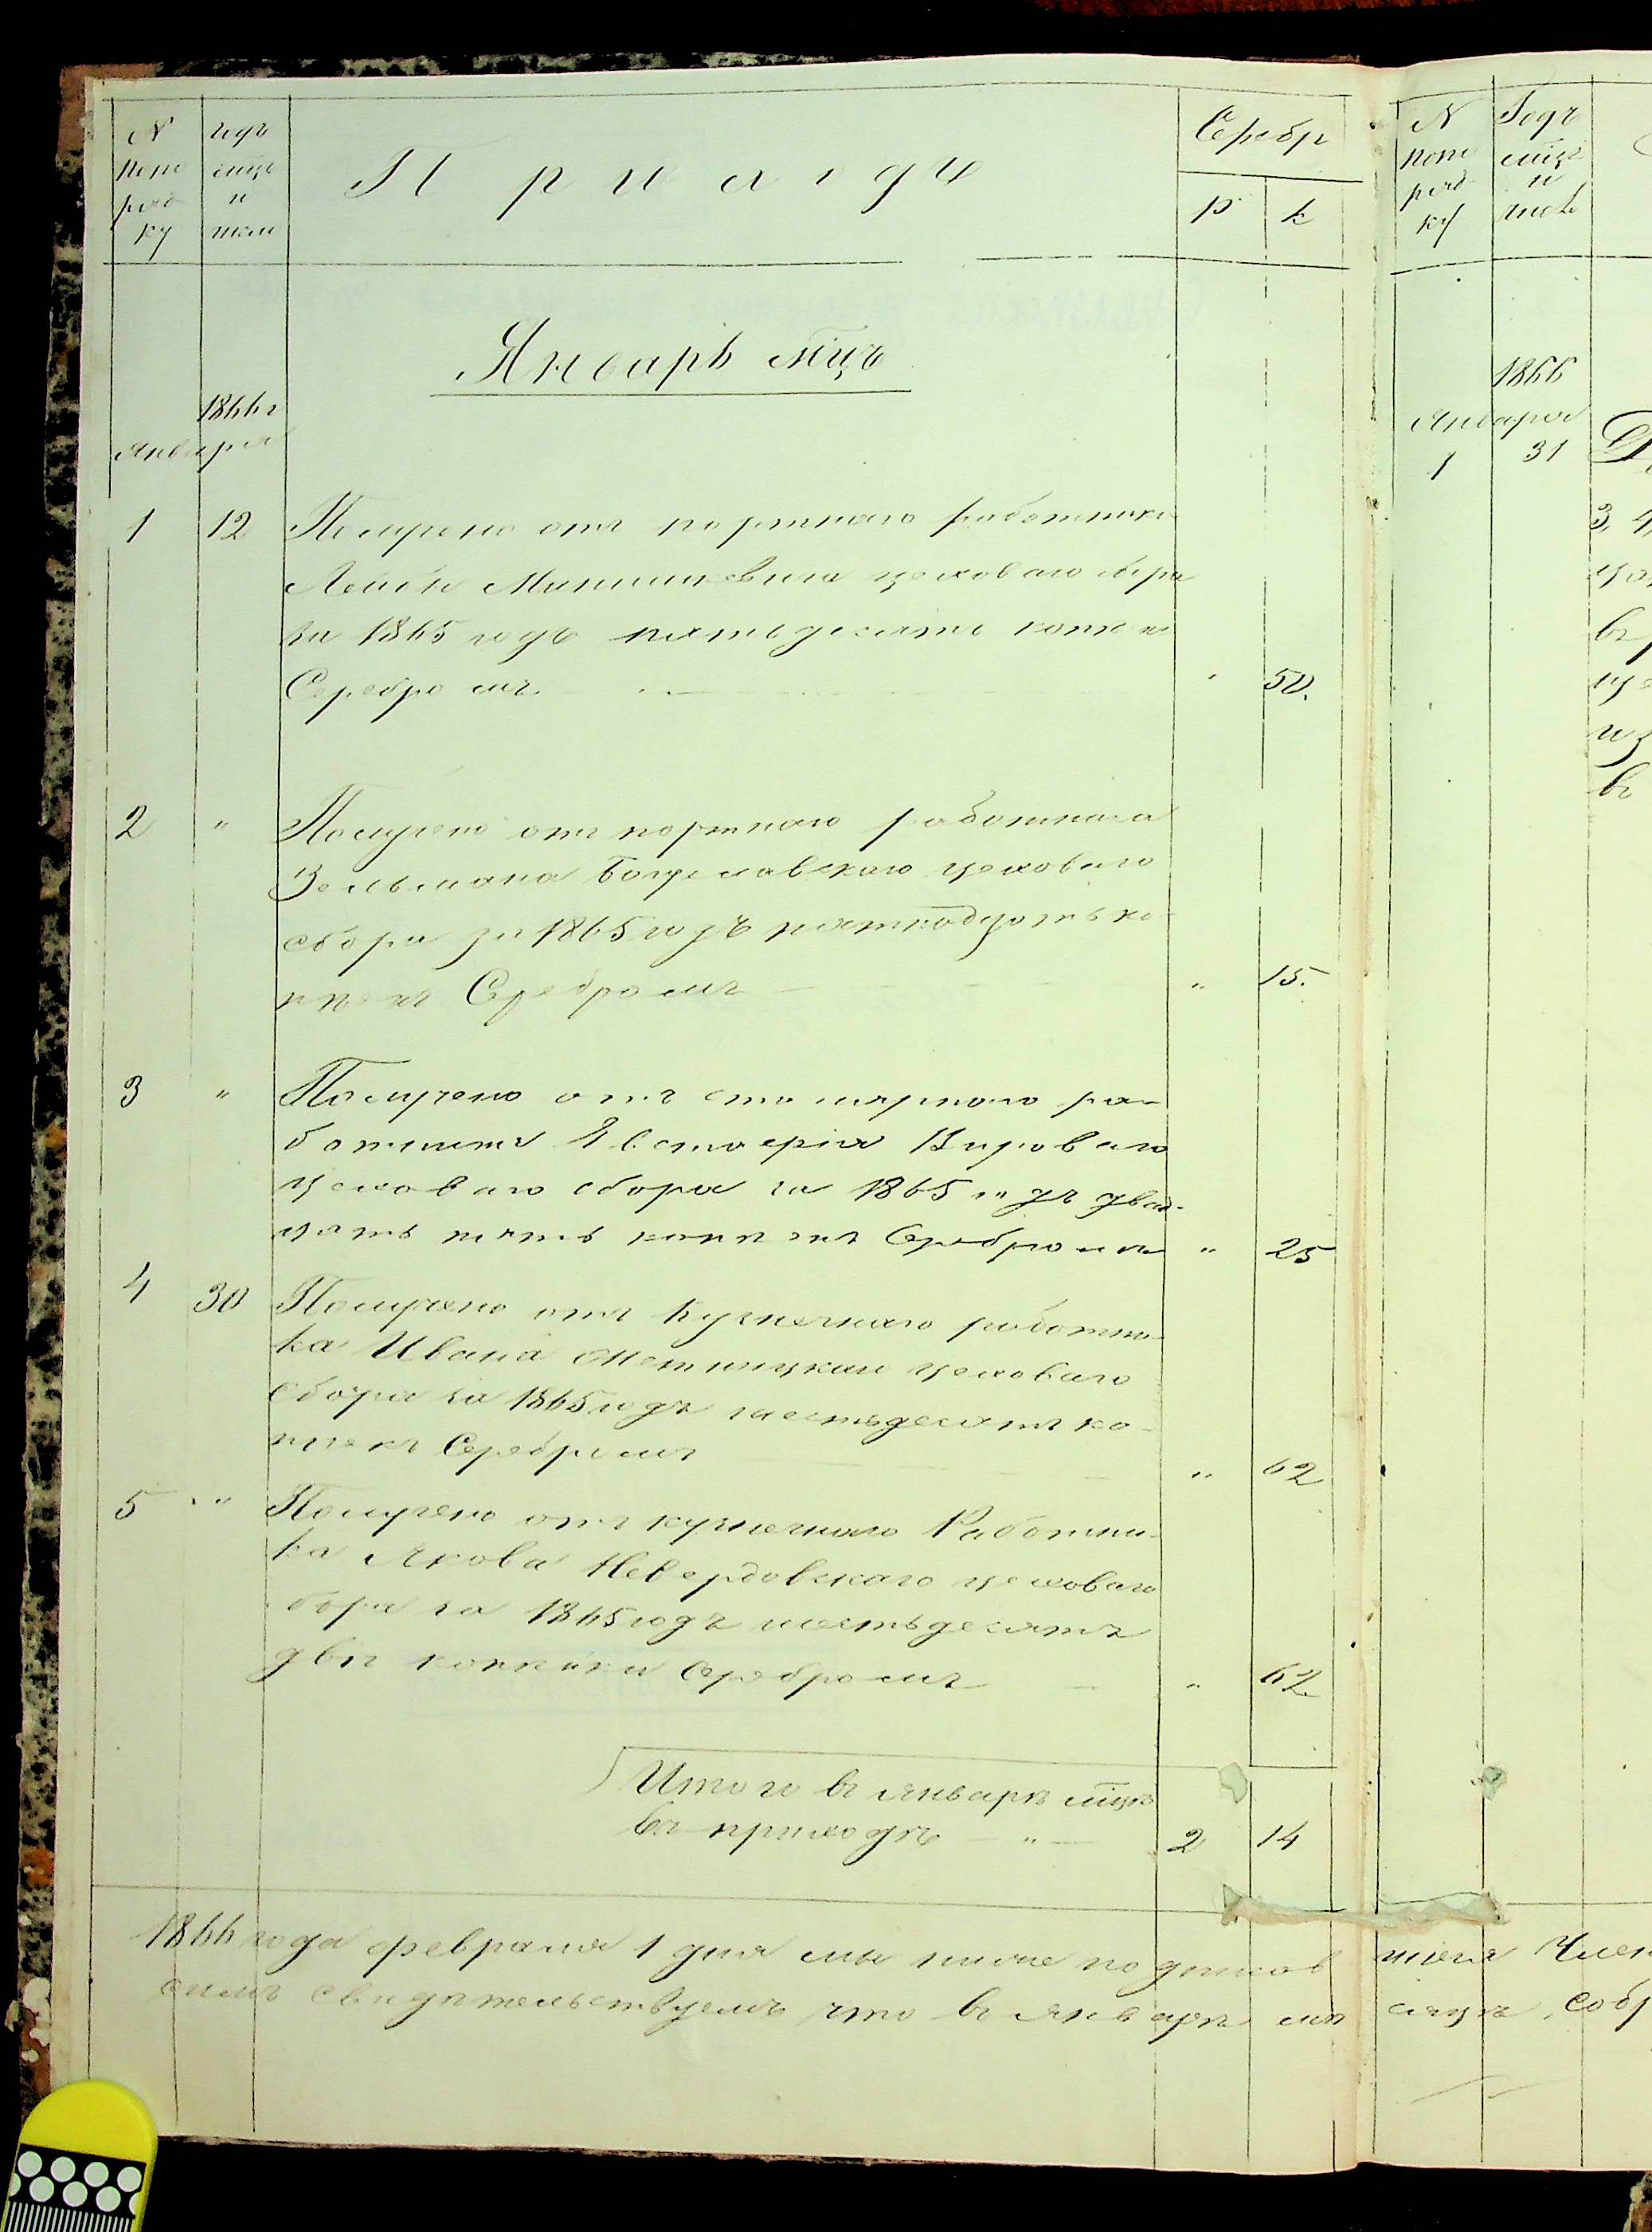 N
попо
ряд
ку
годъ
мцъ
и
число
Приходъ
Серебр
р
к
Январь мцъ
1866 г
Января
1 12 Получено отъ портнаго работника
Лейбы цеховаго сбора
за 1865 годъ пятьдесятъ копѣекъ
Серебромъ " 50.
2 " Получено отъ портнаго работника
Зельмана Богуславскаго цеховаго
сбора за 1865 годъ пятнадцать ко-
пѣекъ Серебромъ " 15.
3 " Получено отъ столярнаго ра-
ботника Кироваго
цеховаго сбора за 1865 годъ двад-
цать пять копѣекъ Серебромъ " 25
4 30 Получено отъ кузнечнаго работни-
ка Ивана цеховаго
сбора за 1865 годъ шестьдесятъ ко-
пѣекъ Серебромъ " 62
5 " Получено отъ кузнечнаго Работни-
ка Якова Невердовскаго цеховаго
сбора за 1865 годъ шестьдесятъ
двѣ копѣйки Серебромъ " 62.
Итого въ январѣ мцѣ
въ приходѣ " 2 14
1866 года февраля 1 дня мы ниже подписав шіеся Член
симъ свидѣтельствуемъ что въ январѣ мѣ сяцѣ, собр
N
попо
ряд
ку
Годъ
мцъ
и
число
1866
Января
1 31
3, 4,
въ
це
из
въ